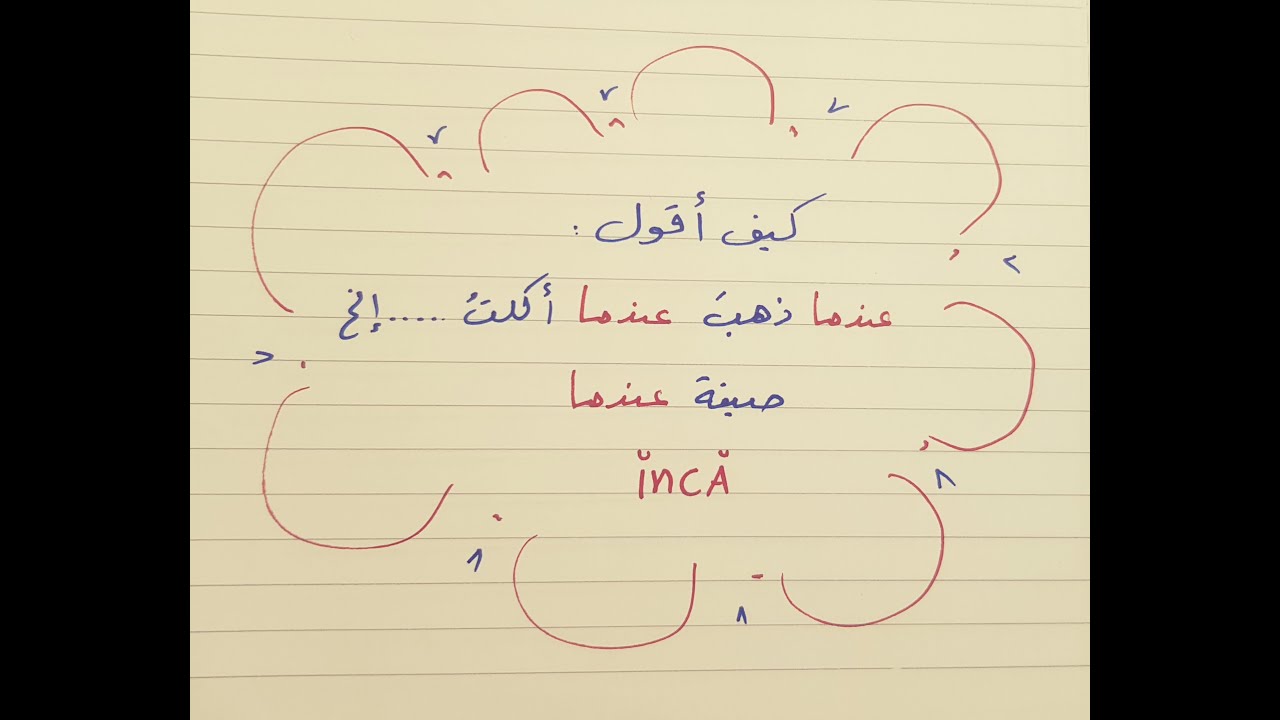 كيف أقول :
عندما ذهبتُ عندما أكلتُ ..... إلخ
صيغة عندما
ĭncĂ